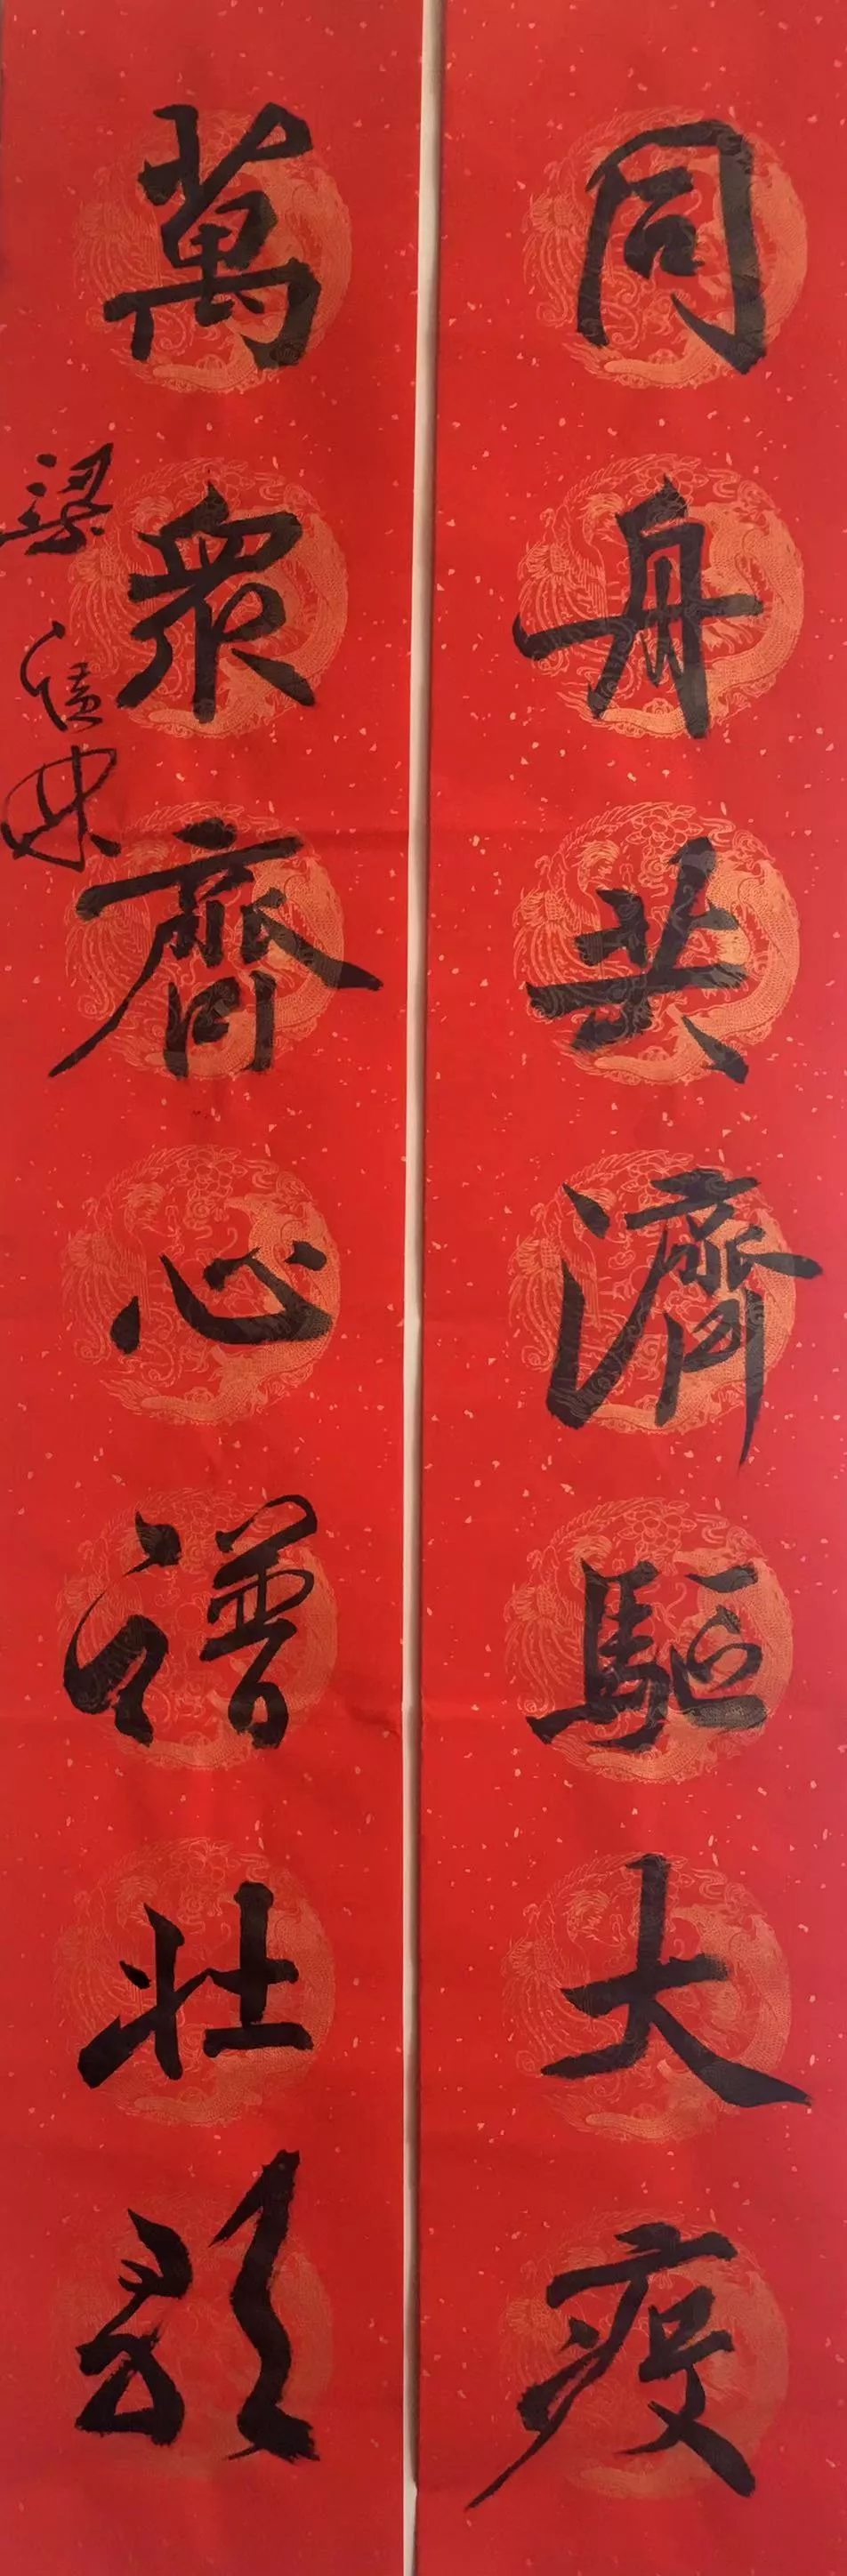 同舟共濟驅大疫
萬衆齊心譜壯歌
梁